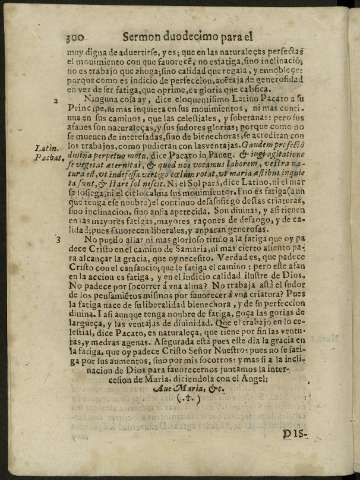 300 Sermon duodecimo para el
muy digna de advertirse, y es; que en las naturaleças perfectas
el mouimiento con que fauorecē, no es fatiga, sino inclinació,
no es trabajo que ahoga; sino calidad que regala, y ennoblece:
porque como es indicio de perfeccion, acēta ja de generosidad
en vez de ser fatiga, que oprime, es gloria que califica.
2 Ninguna cosa ay, dize eloquentissimo Latino Pacato a su
Principe, ni mas inquieta en sus mouimientos, ni mas conti
nua en sus caminos, que las celestiales, y soberanas: pero sus
afanes son naturaleças, y sus sudores glorias; porque como no
se mueuen de interesadas, sino de bienechoras, se acreditan con
los trabajos, como pudieran con las ventajas. Gaudent profectò
Latin. diuina perpetuo motu, dice Pacato in Paneg. & iugi agitatione
Pachat. se vegetat æternitas, & quod nos vocamus laborem, vestra na-
tura est, vt indefessa vertigo cælum rotat, vt maria æstibus inquie
ta sunt, & stare sol nescit. Ni el Sol para, dice Latino, ni el mar
se sosiega; ni el cielo calma sus mouimientos, y no es fatiga (aun
que tenga ese nonbre) el continuo desasosiego destas criaturas,
sino inclinacion, sino ansia apetecida. Son diuinas, y asi tienen
en las mayores fatigas, mayores raçones de sosiego, y de ca-
lidad; pues fauorecen liberales, y anparan generosas.
3 No pudo allar ni mas glorioso titulo a la fatiga que oy pa
dece Cristo en el camino de Samaria, ni mas cierto aliento pa-
ra alcançar la gracia, que oy necesito. Verdad es, que padece
Cristo con el cansancio; que le fatiga el camino: pero este afan
en la accion es fatiga, y en el indicio calidad ilustre de Dios.
No padece por socorrer á vna alma? No trabaja astá el sudor
de los pensamiētos mismos por fauorecer á vna criatura? Pues
la fatiga nace de su liberalidad bienechora, y de su perfeccion
diuina. I asi aunque tenga nonbre de fatiga, goça las glorias de
largueça, y las ventajas de diuinidad. Que el trabajo en lo ce-
lestial, dice Pacato, es naturaleça, que tiene por fin las ventu-
ras, y medras agenas. Asegurada está pues este dia la gracia en
la fatiga, que oy padece Cristo Señor Nuestro; pues no se fati-
ga por sus aumentos, sino por mis socorros: y mas si a la incli-
nacion de Dios para fauorecernos juntamos la inter-
cesion de Maria, diciendola con el Angel;
Aue Maria, &c.
(.†.)
DIS-